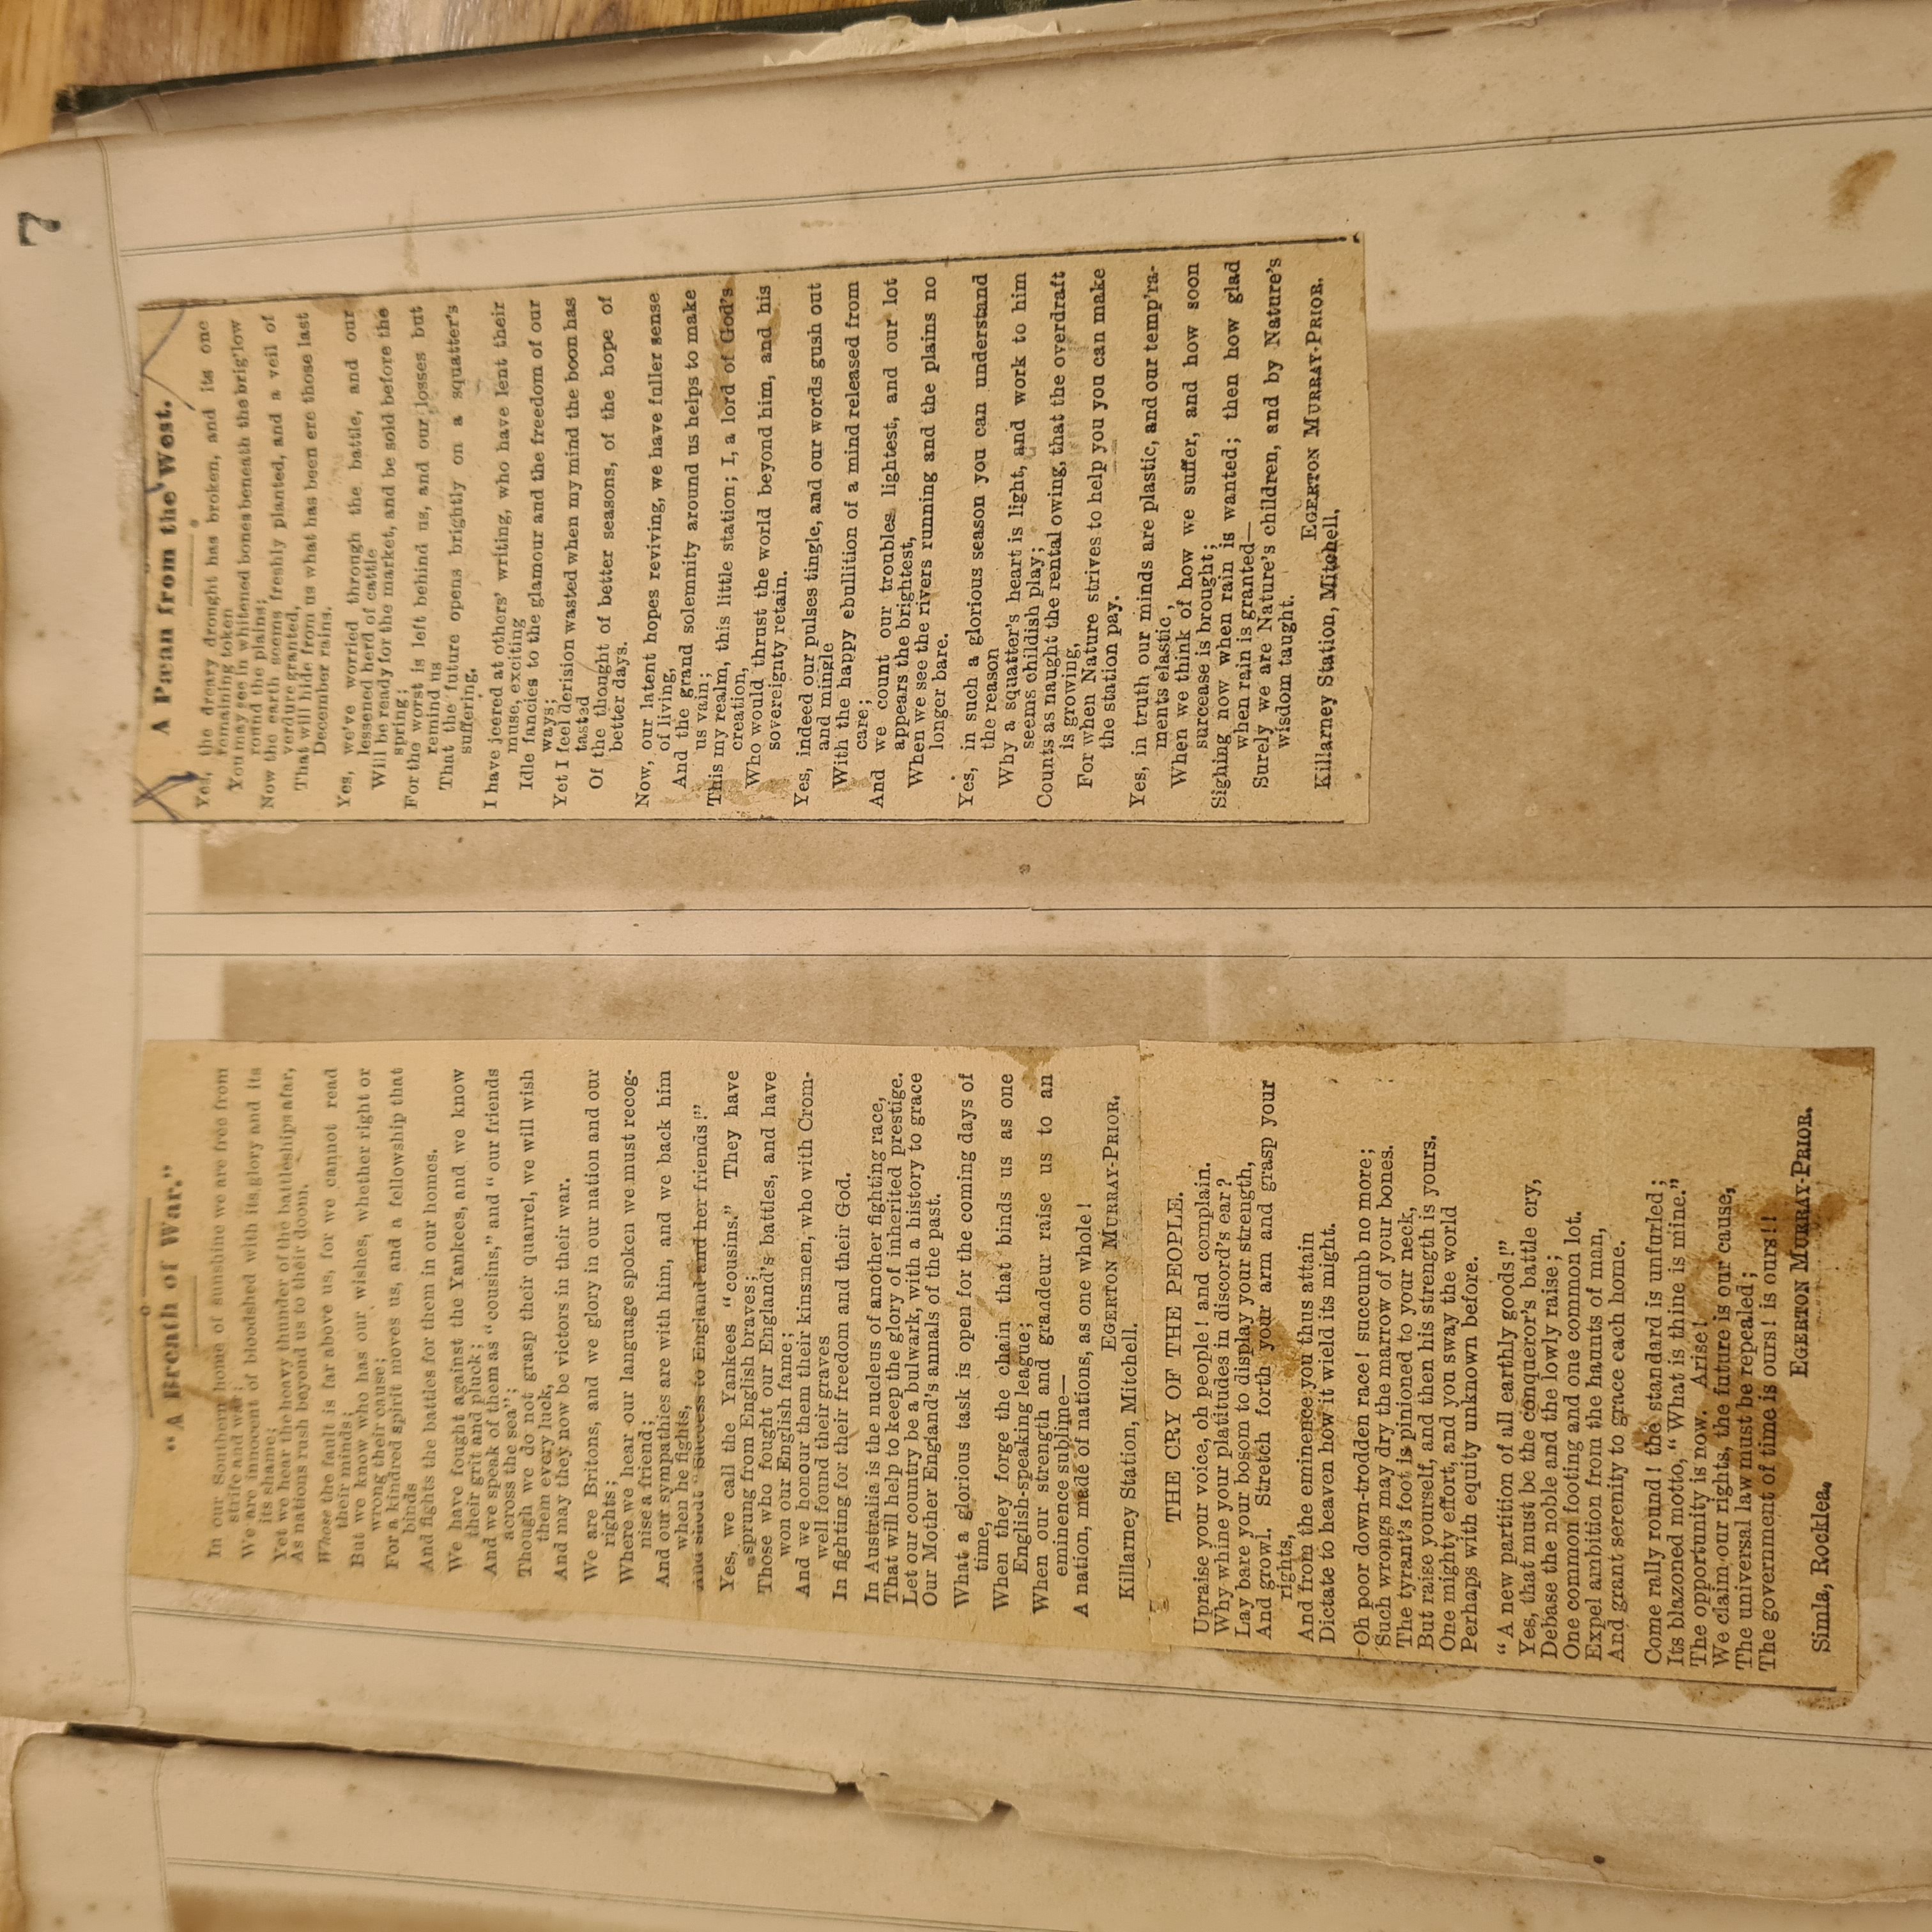 7
"A Breath of War."
In our Southern home of sunshine we are free from
strife and war;
We are innocent of bloodshed with its glory and its
its shame;
Yet we hear the heavy thunder of the battleships afar,
As nations rush beyond us to their doom.
Whose the fault is far above us, for we cannot read
their minds;
But we know who has our wishes, whether right or
wrong their cause;
For a kindred spirit moves us, and a fellowship that
binds
And fights the battles for them in our homes.
We have fought against the Yankees, and we know
their grit and pluck;
And we speak of them as "cousins," and "our friends
across the sea";
Though we do not grasp their quarrel, we will wish
them every luck,
And may they now be victors in their war.
We are Britons, and we glory in our nation and our
rights;
Where we hear our language spoken we must recog-
nise a friend;
And our sympathies are with him, and we back him
when he fights,
And shout "Success to England and her friends!"
Yes, we call the Yankees "cousins." They have
sprung from English braves;
Those who fought our England's battles, and have
won our English fame;
And we honour them their kinsmen, who with Crom-
well found their graves
In fighting for their freedom and their God.
In Australia is the nucleus of another fighting race,
That will help to keep the glory of inherited prestige.
Let our country be a bulwark, with a history to grace
Our Mother England's annals of the past.
What a glorious task is open for the coming days of
time,
When they forge the chain that binds us as one
English-speaking league;
When our strength and grandeur raise us to an
eminence sublime—
A nation, made of nations, as one whole!
EGERTON MURRAY-PRIOR.
Killarney Station, Mitchell.
THE CRY OF THE PEOPLE.
Upraise your voice, oh people! and complain.
Why whine your platitudes in discord's ear?
Lay bare your bosom to display your strength,
And growl. Stretch forth your arm and grasp your
rights,
And from the eminence you thus attain
Dictate to heaven how it wield its might.
Oh poor down-trodden race! succumb no more;
Such wrongs may dry the marrow of your bones.
The tyrant's foot is pinioned to your neck,
But raise yourself, and then his strength is yours.
One mighty effort, and you sway the world
Perhaps with equity unknown before.
"A new partition of all earthly goods!"
Yes, that must be the conqueror's battle cry,
Debase the noble and the lowly raise;
One common footing and one common lot.
Expel ambition from the haunts of man,
And grant serenity to grace each home.
Come rally round! the standard is unfurled;
Its blazoned motto, "What is thine is mine."
The opportunity is now. Arise!
We claim our rights, the future is our cause,
The universal law must be repealed;
The government of time is ours! is ours!!
EGERTON MURRAY-PRIOR.
Simla, Rocklea.
A Pæan from the West.
Yes, the dreary drought has broken, and its one
remaining token
You may see in whitened bones beneath the brig'low
round the plains;
Now the earth seems freshly planted, and a veil of
verdure granted,
That will hide from us what has been ere those last
December rains.
Yes, we've worried through the battle, and our
lessened herd of cattle
Will be ready for the market, and be sold before the
spring;
For the worst is left behind us, and our losses but
remind us
That the future opens brightly on a squatter's
suffering.
I have jeered at others' writing, who have lent their
muse, exciting
Idle fancies to the glamour and the freedom of our
ways;
Yet I feel derision wasted when my mind the boon has
tasted
Of the thought of better seasons, of the hope of
better days.
Now, our latent hopes reviving, we have fuller sense
of living,
And the grand solemnity around us helps to make
us vain;
This my realm, this little station; I, a lord of God's
creation,
Who would thrust the world beyond him, and his
sovereignty retain.
Yes, indeed our pulses tingle, and our words gush out
and mingle
With the happy ebullition of a mind released from
care;
And we count our troubles lightest, and our lot
appears the brightest,
When we see the rivers running and the plains no
longer bare.
Yes, in such a glorious season you can understand
the reason
Why a squatter's heart is light, and work to him
seems childish play;
Counts as naught the rental owing, that the overdraft
is growing,
For when Nature strives to help you you can make
the station pay.
Yes, in truth our minds are plastic, and our temp'ra-
ments elastic,
When we think of how we suffer, and how soon
surcease is brought;
Sighing now when rain is wanted; then how glad
when rain is granted—
Surely we are Nature's children, and by Nature's
wisdom taught.
EGERTON MURRAY-PRIOR.
Killarney Station, Mitchell.